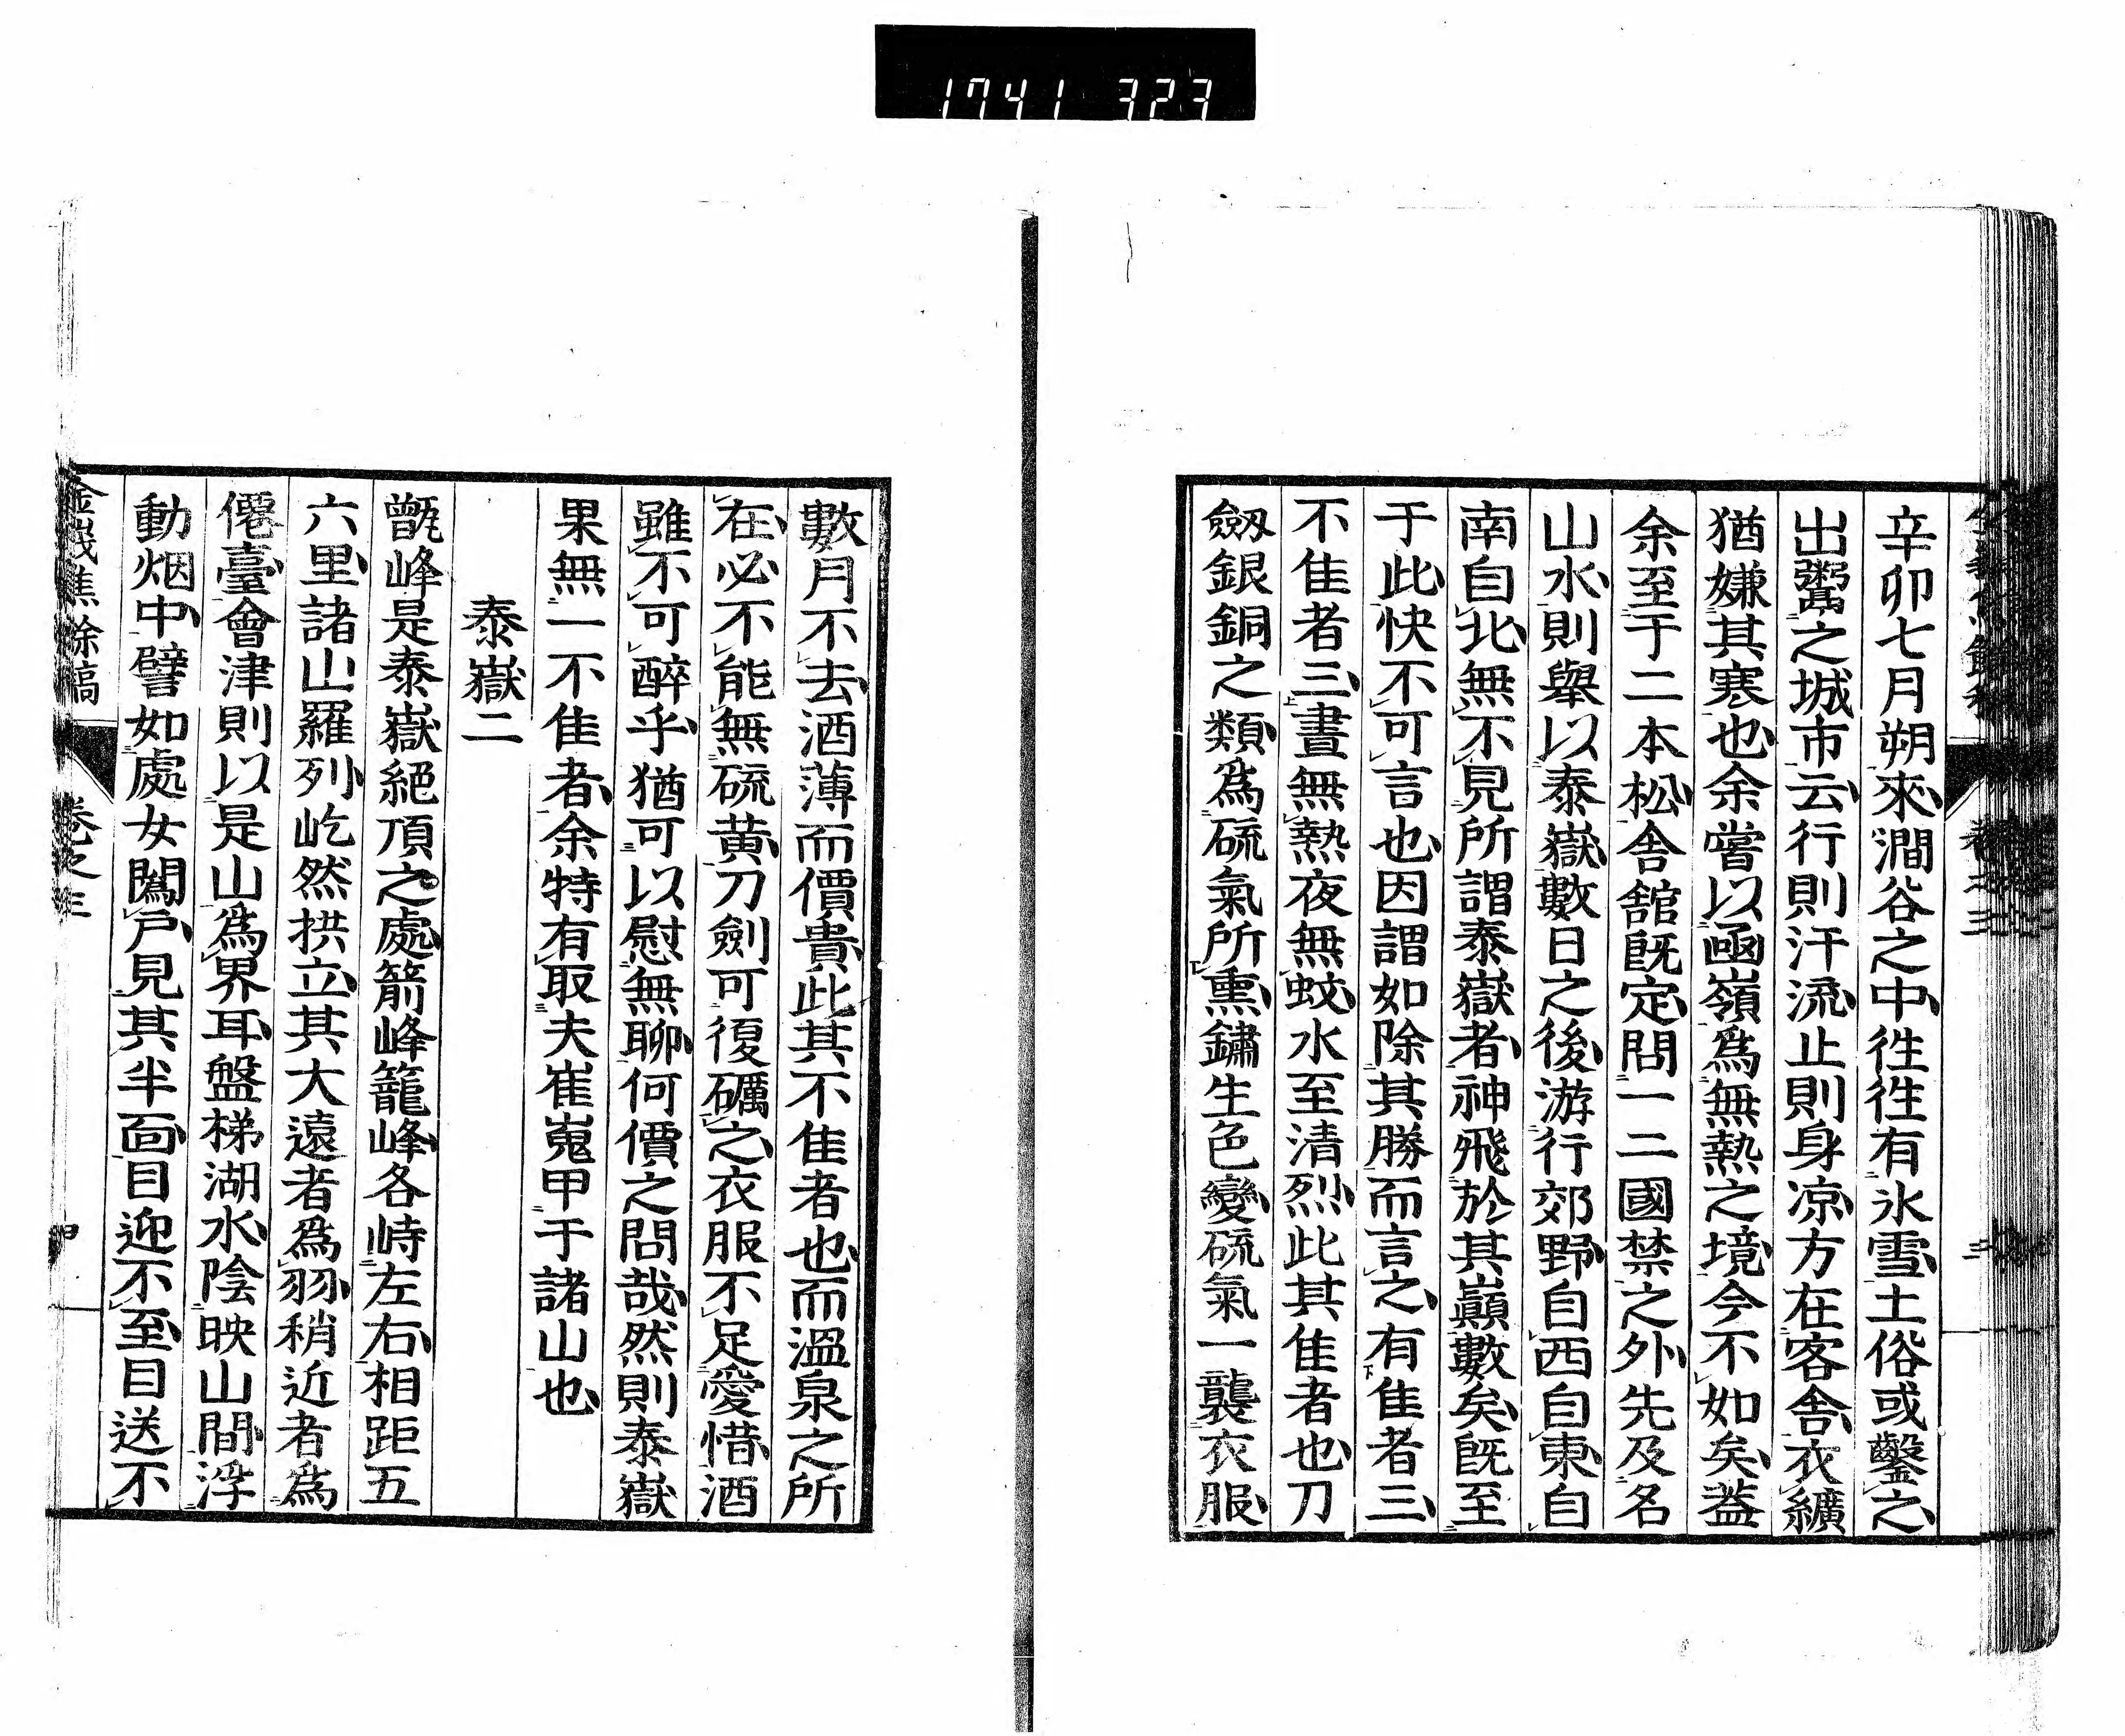 1741 323
辛卯七月朔來澗谷之中徃徃有氷雪土俗或鑿之
出鬻之城市云行則汗流止則身凉方在客舎衣纊
猶嫌其寒也余嘗以凾嶺爲無熱之境今不如矣葢
余至于二本松舎舘既定問一二國禁之外先及名
山水則舉以泰嶽數日之後游行郊野自西自東自
南自北無不見所謂泰嶽者神飛於其巓數矣既至
于此快不可言也因謂如除其勝而言之有隹者三
不隹者三晝無熱夜無蚊水至清烈此其隹者也刀
劔銀銅之類爲硫氣所熏鏽生色變硫氣一襲衣服
數月不去酒薄而價貴此其不隹者也而溫泉之所
在必不能無硫黄刀劍可復礪之衣服不足愛惜酒
雖不可醉乎猶可以慰無聊何價之問哉然則泰嶽
果無一不隹者余特有取夫崔嵬甲于諸山也
泰嶽二
甑峰是泰嶽絕頂之處箭峰籠峰各峙左右相距五
六里諸山羅列屹然拱立其大遠者爲羽稍近者爲
僊臺會津則以是山爲界耳盤梯湖水陰映山間浮
動烟中譬如處女闖戸見其半面目迎不至目送不
金峩焦餘稿
卷之三